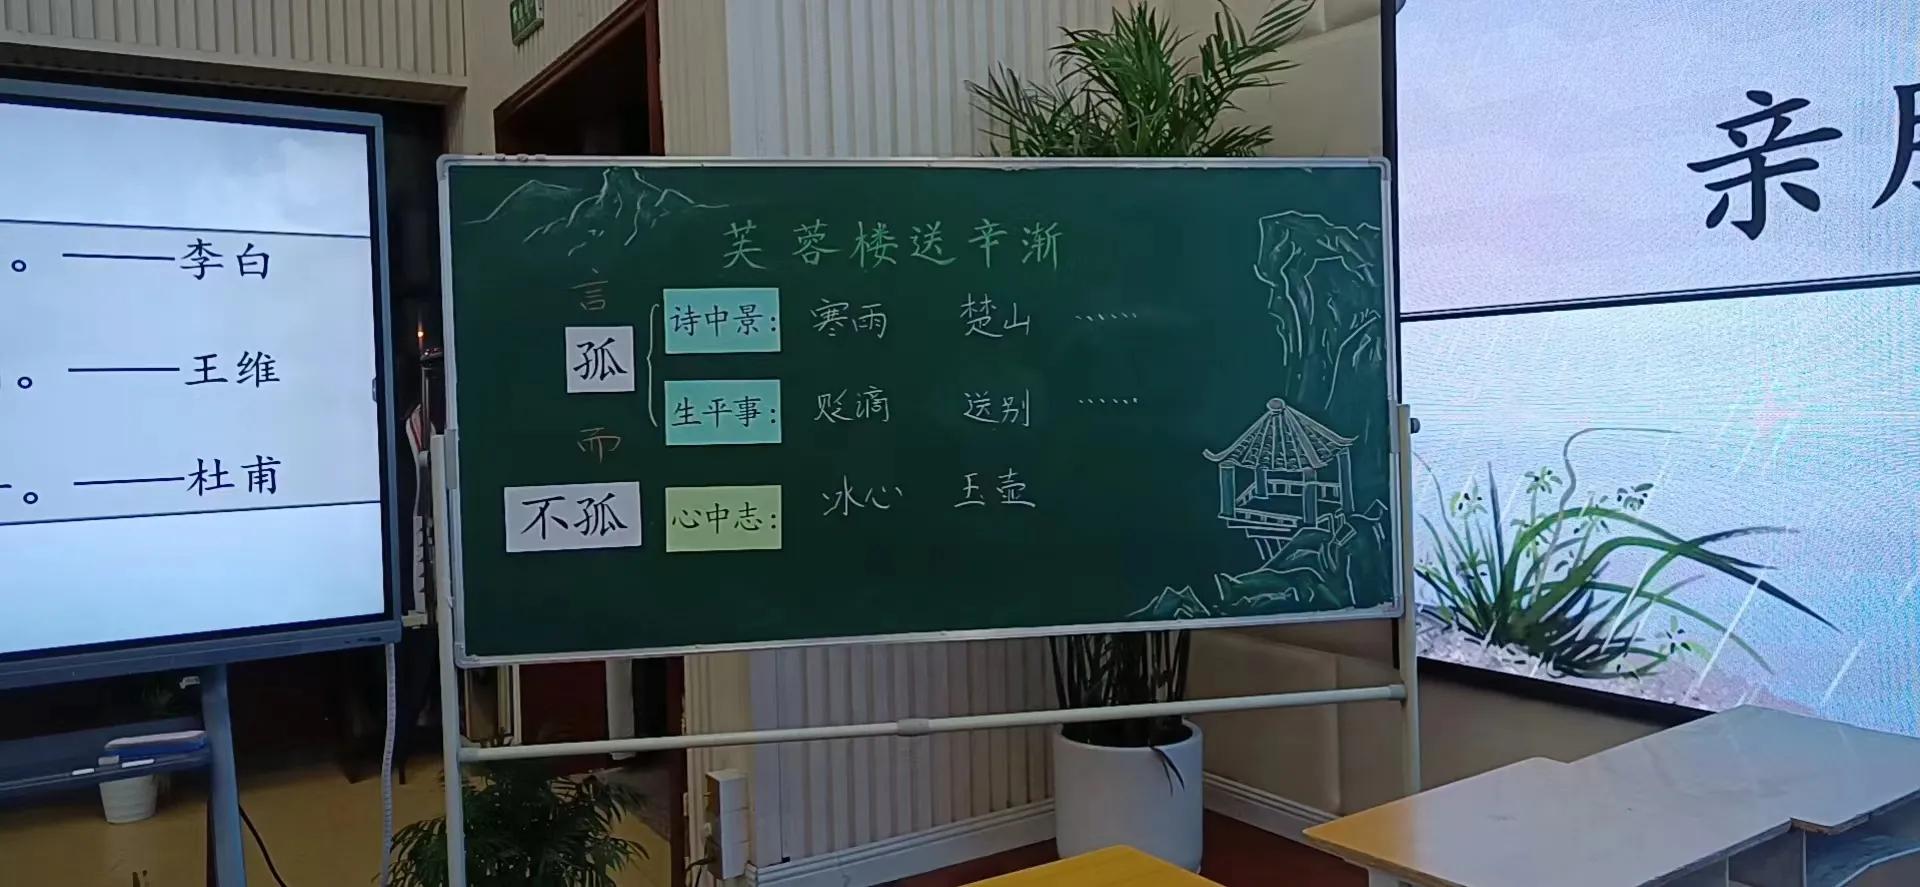 。——李白
。——王维
。——杜甫
芙蓉楼送辛渐
言
孤
而
不孤
诗中景：寒雨 楚山 ……
生平事：贬谪 送别 ……
心中志：冰心 玉壶
亲